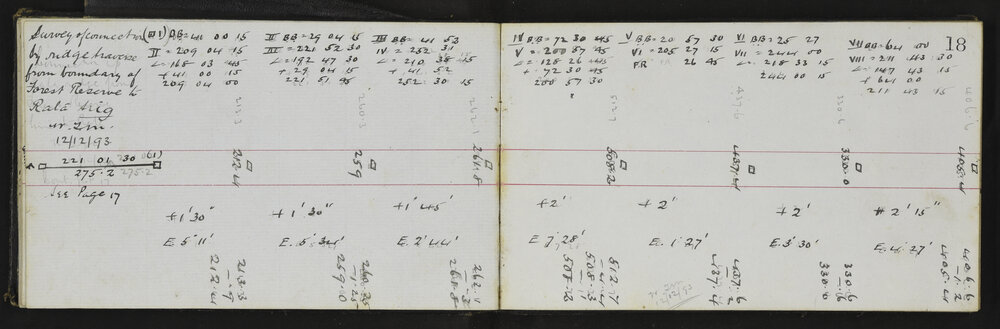 Survey of connection
by ridge traverse
from boundary of
Forest Reserve to
Rata trig
12/12/93
221 01 30 (1)
275.2 275.2
See Page 17
(I) BB = 41 00 15
II = 209 04 15
∠ = 168 03 45
+ 41 00 15
209 04 00
II BB = 29 04 15
III = 221 52 30
∠ = 192 47 30
+ 29 04 15
221 51 45
III BB = 41 53
IV = 252 31
∠ = 210 38 45
+ 41 52
252 30 15
IV BB = 72 30 45
V = 200 57 45
∠ = 128 26 45
+ 72 30
200 57 30
V BB = 20 57 30
VI = 205 27 15
F.R 26 45
VI BB = 25 27
VII = 244 00
∠ = 218 33 15
244 00 15
VII BB = 64 00
VIII = 211 43 30
∠ = 147 43 15
+ 64 00
211 43 15
18
213.3
260.3
262.1
512.7
437.6
330.6
406.6
212.4
259
508.2
437.4
330.0
405.4
+1' 30"
+1' 30"
+1' 45'
+2'
+2'
+2'
+2' 15"
E 5° 11'
E. 5° 34'
E. 2° 44'
E 7° 28'
E. 1° 27'
E. 3° 30'
E. 4° 27'
213.3
212.4
259.0
262.1
512.7
508.3
508.2
437.6
437.4
330.6
330.0
406.6
1.2
405.4